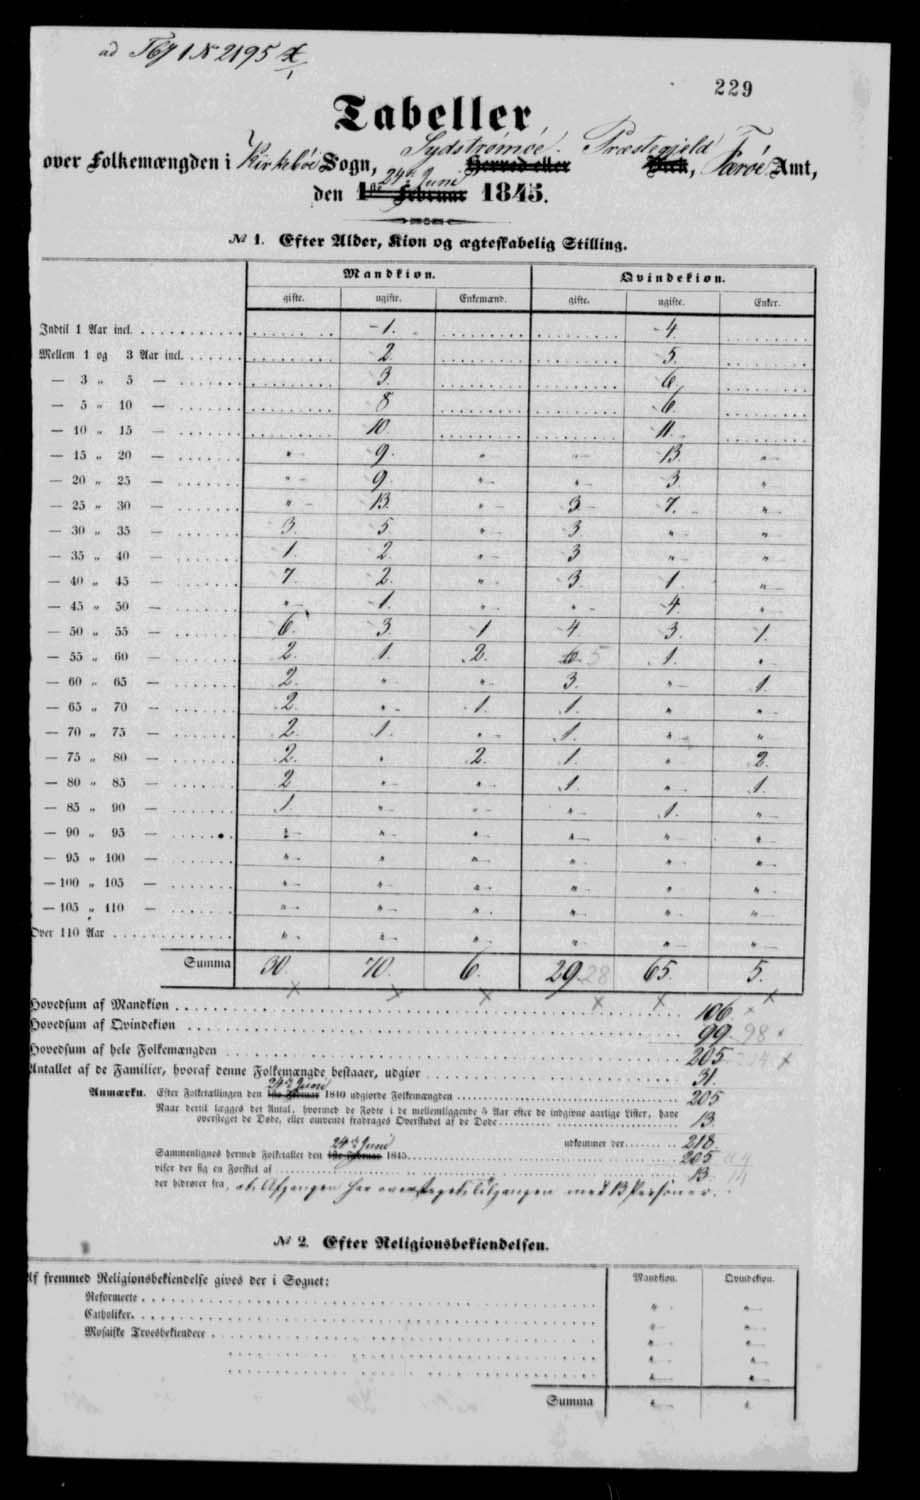 ad Tbf 1 N 2195
229
Tabeller
over Folkemængden i Kirkebøe Sogn, Sydstrømöe Herred eller Præstegjeld Birk, Færöe Amt,
den 1ste Februar 24de Juni 1845.
№ 1. Efter Alder, Kion og ægteskabelig Stilling.
Mandkion. Qvindekion.
gifte. ugifte. Enkemænd. gifte. ugifte. Enker.
Indtil 1 Aar incl. 1. 4.
Mellem 1 og 3 Aar incl. 2. 5.
— 3 „ 5 — 3. 6.
— 5 „ 10 — 8 6.
— 10 „ 15 — 10. 11.
— 15 „ 20 — „ 9. „ „ 13. „
— 20 „ 25 — „ 9. „ „ 3. „
— 25 „ 30 — „ 13. „ 3. 7. „
— 30 „ 35 — 3. 5. „ 3. „ „
— 35 „ 40 — 1. 2. „ 3 „ „
— 40 „ 45 — 7. 2. „ 3. 1. „
— 45 „ 50 — „ 1. „ „ 4. „
— 50 „ 55 — 6. 3. 1 4. 3. 1.
— 55 „ 60 — 2. 1. 2. 6. 5 1. „
— 60 „ 65 — 2. „ „ 3. „ 1.
— 65 „ 70 — 2. „ 1. 1. „ „
— 70 „ 75 — 2. 1. „ 1. „ „
— 75 „ 80 — 2. „ 2. 1. „ 2.
— 80 „ 85 — 2 „ „ 1. „ 1.
— 85 „ 90 — 1. „ „ „ 1. „
— 90 „ 95 — „ „ „ „ „ „
— 95 „ 100 — „ „ „ „ „ „
— 100 „ 105 — „ „ „ „ „ „
— 105 „ 110 — „ „ „ „ „ „
Over 110 Aar „ „ „ „ „ „
Summa 30. 70. 6. 29. 28 65. 5.
Hovedsum af Mandkion 106.
Hovedsum af Qvindekion 99. 98
Hovedsum af hele Folkemængden 205. 204
Antallet af de Familier, hvoraf denne Folkemængde bestaaer, udgiør 31.
Anmærkn. Efter Folketællingen den 1ste Februar 24de Juni 1840 udgiorde Folkemængden 205
Naar dertil lægges det Antal, hvormed de Fødte i de mellemliggende 5 Aar efter de indgivne aarlige Lister, have
oversteget de Døde, eller omvendt fradrages Overskudet af de Døde 13.
udkommer der 218.
Sammenlignes hermed Folketallet den 1ste Februar 24de Juni 1845 205
viser der sig en Forskiel af 13. 14
der hidrører fra, at Afgangen har oversteget Tilgangen med 13 Personer.
№ 2. Efter Religionsbekiendelsen.
Af fremmed Religionsbekiendelse gives der i Sognet: Mandkion. Qvindekion.
Reformerte „ „
Catholiker „ „
Mosaiske Troesbekiendere „ „
„ „
„ „
Summa „ „